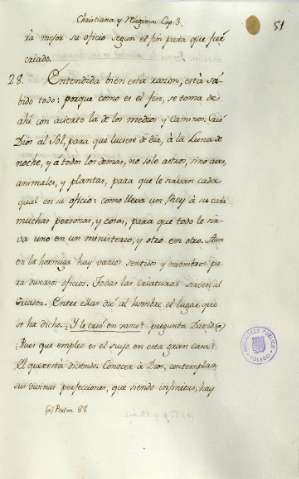 Christiana y Magina. Cap. 3.
51
ria mejor su oficio segun el fin para que fue
criado.
28. Entendida bien esta razon, está sa-
bido todo: porque como es el fin, se toma de
ahi con acierto la de los medios y caminos. Crió
Dios al Sol, para que luciere de dia, à la Luna de
noche, y à todos los demas, no solo astros, sino aves,
animales, y plantas, para que le sirvan cada
qual en su oficio: como lleva un Rey à su casa
muchas personas, y cosas, para que todo le sir-
va uno en un ministerio, y otro en otro. Aun
en la hormiga hay varios sentidos y miembros pa-
ra diversos oficios. Todas las criaturas sirven al
Entre ellas dió al hombre el lugar que
se ha dicho. Y la razon pregunta David (a)
Pues que empleo es el suyo en esta gran casa?
El que está diciendo: Conocer à Dios, contemplar
sus divinas perfecciones, que siendo infinitas, hay
(a) Psalm. 88
BIBLIOTECA PUBLICA
TOLEDO